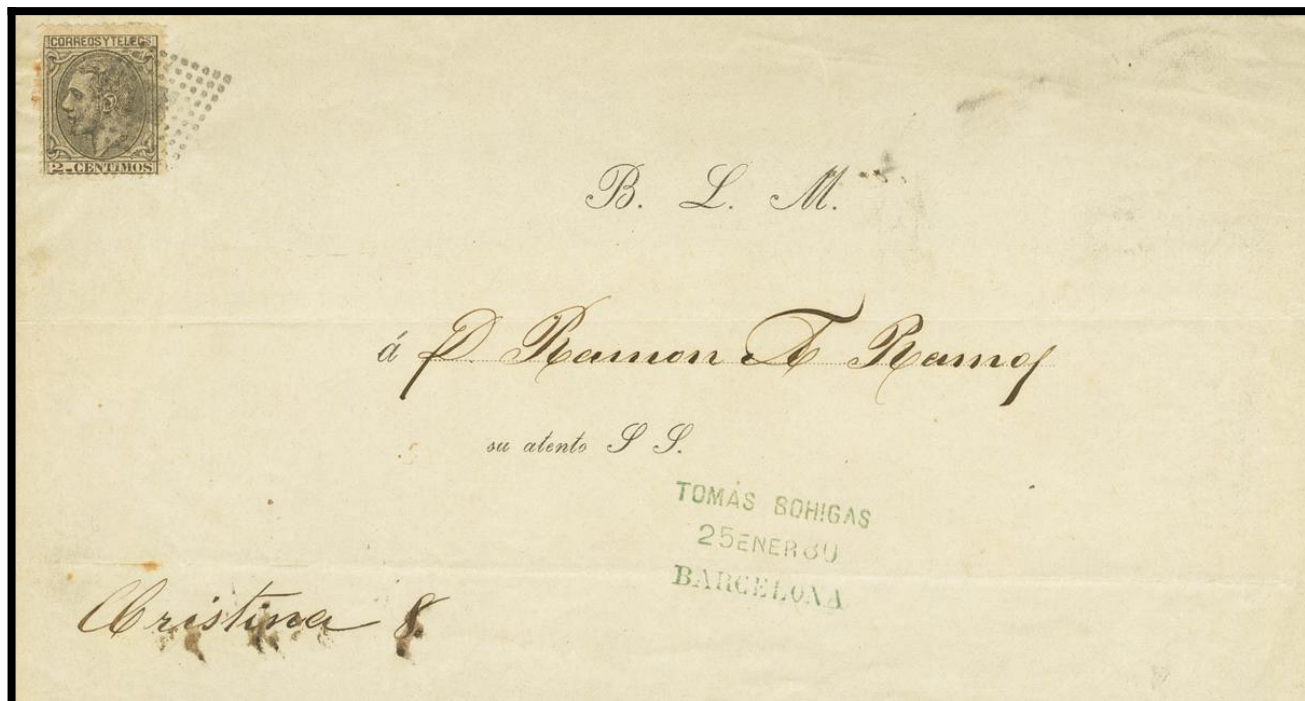 CORREOS Y TELEGS
2-CENTIMOS
B. L. M.
á D. Ramon A Ramos
su atento S S.
TOMÁS BOHIGAS
25 ENER 80
BARCELONA
Cristina 8.